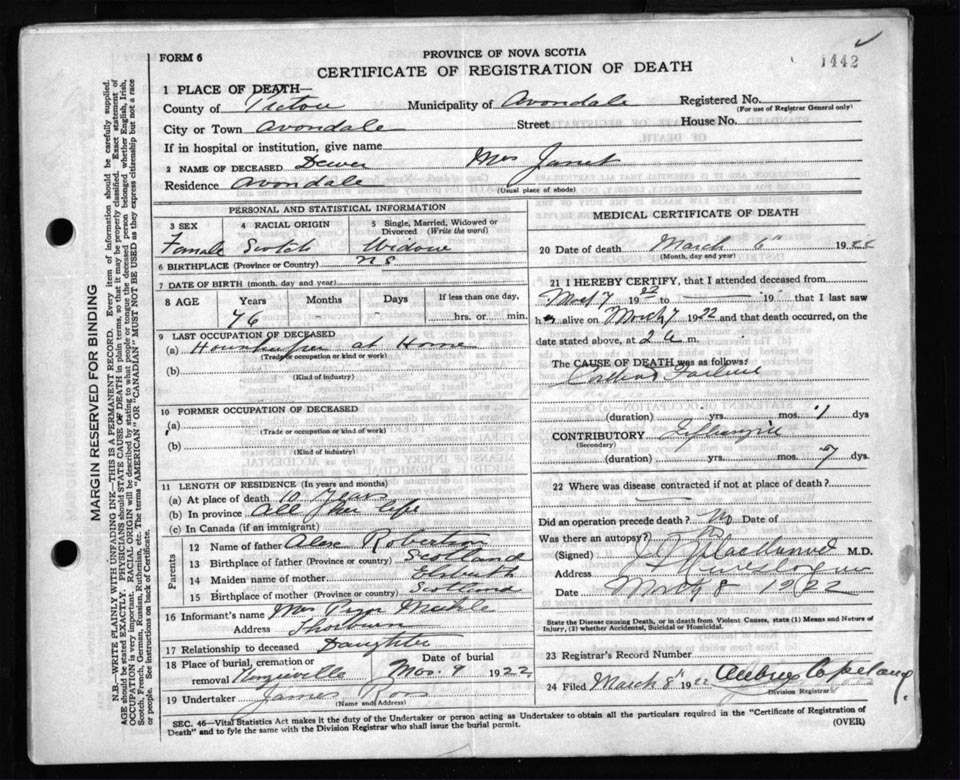 FORM 6
PROVINCE OF NOVA SCOTIA
CERTIFICATE OF REGISTRATION OF DEATH
1442
MARGIN RESERVED FOR BINDING
N.B.—WRITE PLAINLY WITH UNFADING INK—THIS IS A PERMANENT RECORD. Every item of information should be carefully supplied.
AGE should be stated EXACTLY. PHYSICIANS should STATE CAUSE OF DEATH in plain terms, so that it may be properly classified. Exact statement of
OCCUPATION is very important. RACIAL ORIGIN will be described by stating to what people or tongue the deceased person belonged whether English, Irish,
Scotch, French, German, Russian, Ruthenian, etc. The terms "AMERICAN" OR "CANADIAN" MUST NOT BE USED as they express citizenship but not a race
or people. See instructions on back of Certificate.
1 PLACE OF DEATH—
County of Pictou Municipality of Avondale Registered No.
(For use of Registrar General only)
City or Town Avondale Street House No.
If in hospital or institution, give name
2 NAME OF DECEASED Dewer Mrs Janet
Residence Avondale
(Usual place of abode)
PERSONAL AND STATISTICAL INFORMATION
3 SEX Female
4 RACIAL ORIGIN Scotch
5 Single, Married, Widowed or Divorced (Write the word) Widow
6 BIRTHPLACE (Province or Country) N S
7 DATE OF BIRTH (month, day and year)
8 AGE Years Months Days If less than one day,
76 hrs. or min.
9 LAST OCCUPATION OF DECEASED
(a) at Home
(Trade or occupation or kind or work)
(b)
(Kind of industry)
10 FORMER OCCUPATION OF DECEASED
(a)
(Trade or occupation or kind or work)
(b)
(Kind of industry)
11 LENGTH OF RESIDENCE (In years and months)
(a) At place of death 10 Years
(b) In province All of her life
(c) In Canada (if an immigrant)
Parents
12 Name of father Alex Robertson
13 Birthplace of father (Province or country) Scotland
14 Maiden name of mother
15 Birthplace of mother (Province or country) Scotland
16 Informant's name Mrs Meikle
Address Thorburn
17 Relationship to deceased Daughter
18 Place of burial, cremation or removal Date of burial Mar. 9 1922
19 Undertaker James Ross
(Name and Address)
MEDICAL CERTIFICATE OF DEATH
20 Date of death March 6" 192
(Month, day and year)
21 I HEREBY CERTIFY, that I attended deceased from
7 1922 to 19 that I last saw
alive on March 7 1922 and that death occurred, on
date stated above, at 2 a m.
The CAUSE OF DEATH was as follows:
Failure
(duration) yrs. mos. 1 dys
CONTRIBUTORY
(Secondary)
(duration) yrs. mos. 7 dys.
22 Where was disease contracted if not at place of death?
Did an operation precede death? No Date of
Was there an autopsy? No
(Signed) M.D.
Address
Date March 8 1922
State the Disease causing Death, or in death from Violent Causes, state (1) Means and Nature of
Injury, (2) whether Accidental, Suicidal or Homicidal.
23 Registrar's Record Number
24 Filed March 8" 1922 Aubrey Copeland
Division Registrar
SEC. 46—Vital Statistics Act makes it the duty of the Undertaker or person acting as Undertaker to obtain all the particulars required in the "Certificate of Registration of
Death" and to fyle the same with the Division Registrar who shall issue the burial permit.
(OVER)